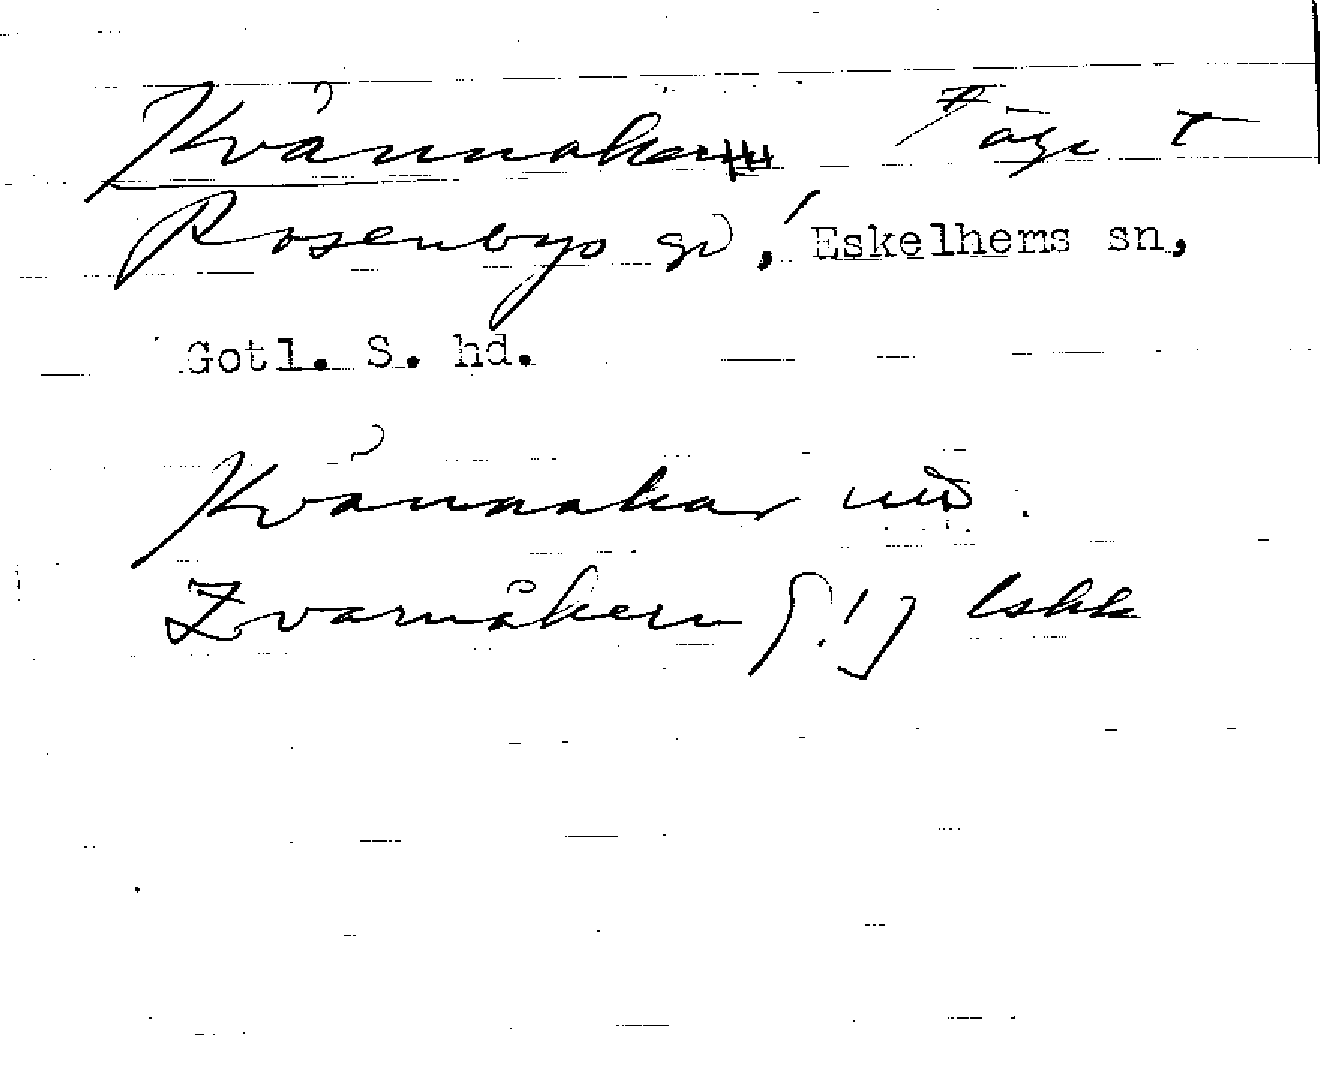 Kvännåker äga t
Rosenbys gd, Eskelhems sn,
Gotl. S. hd.
Kvännakar
Kvarnåkern [!] lskk